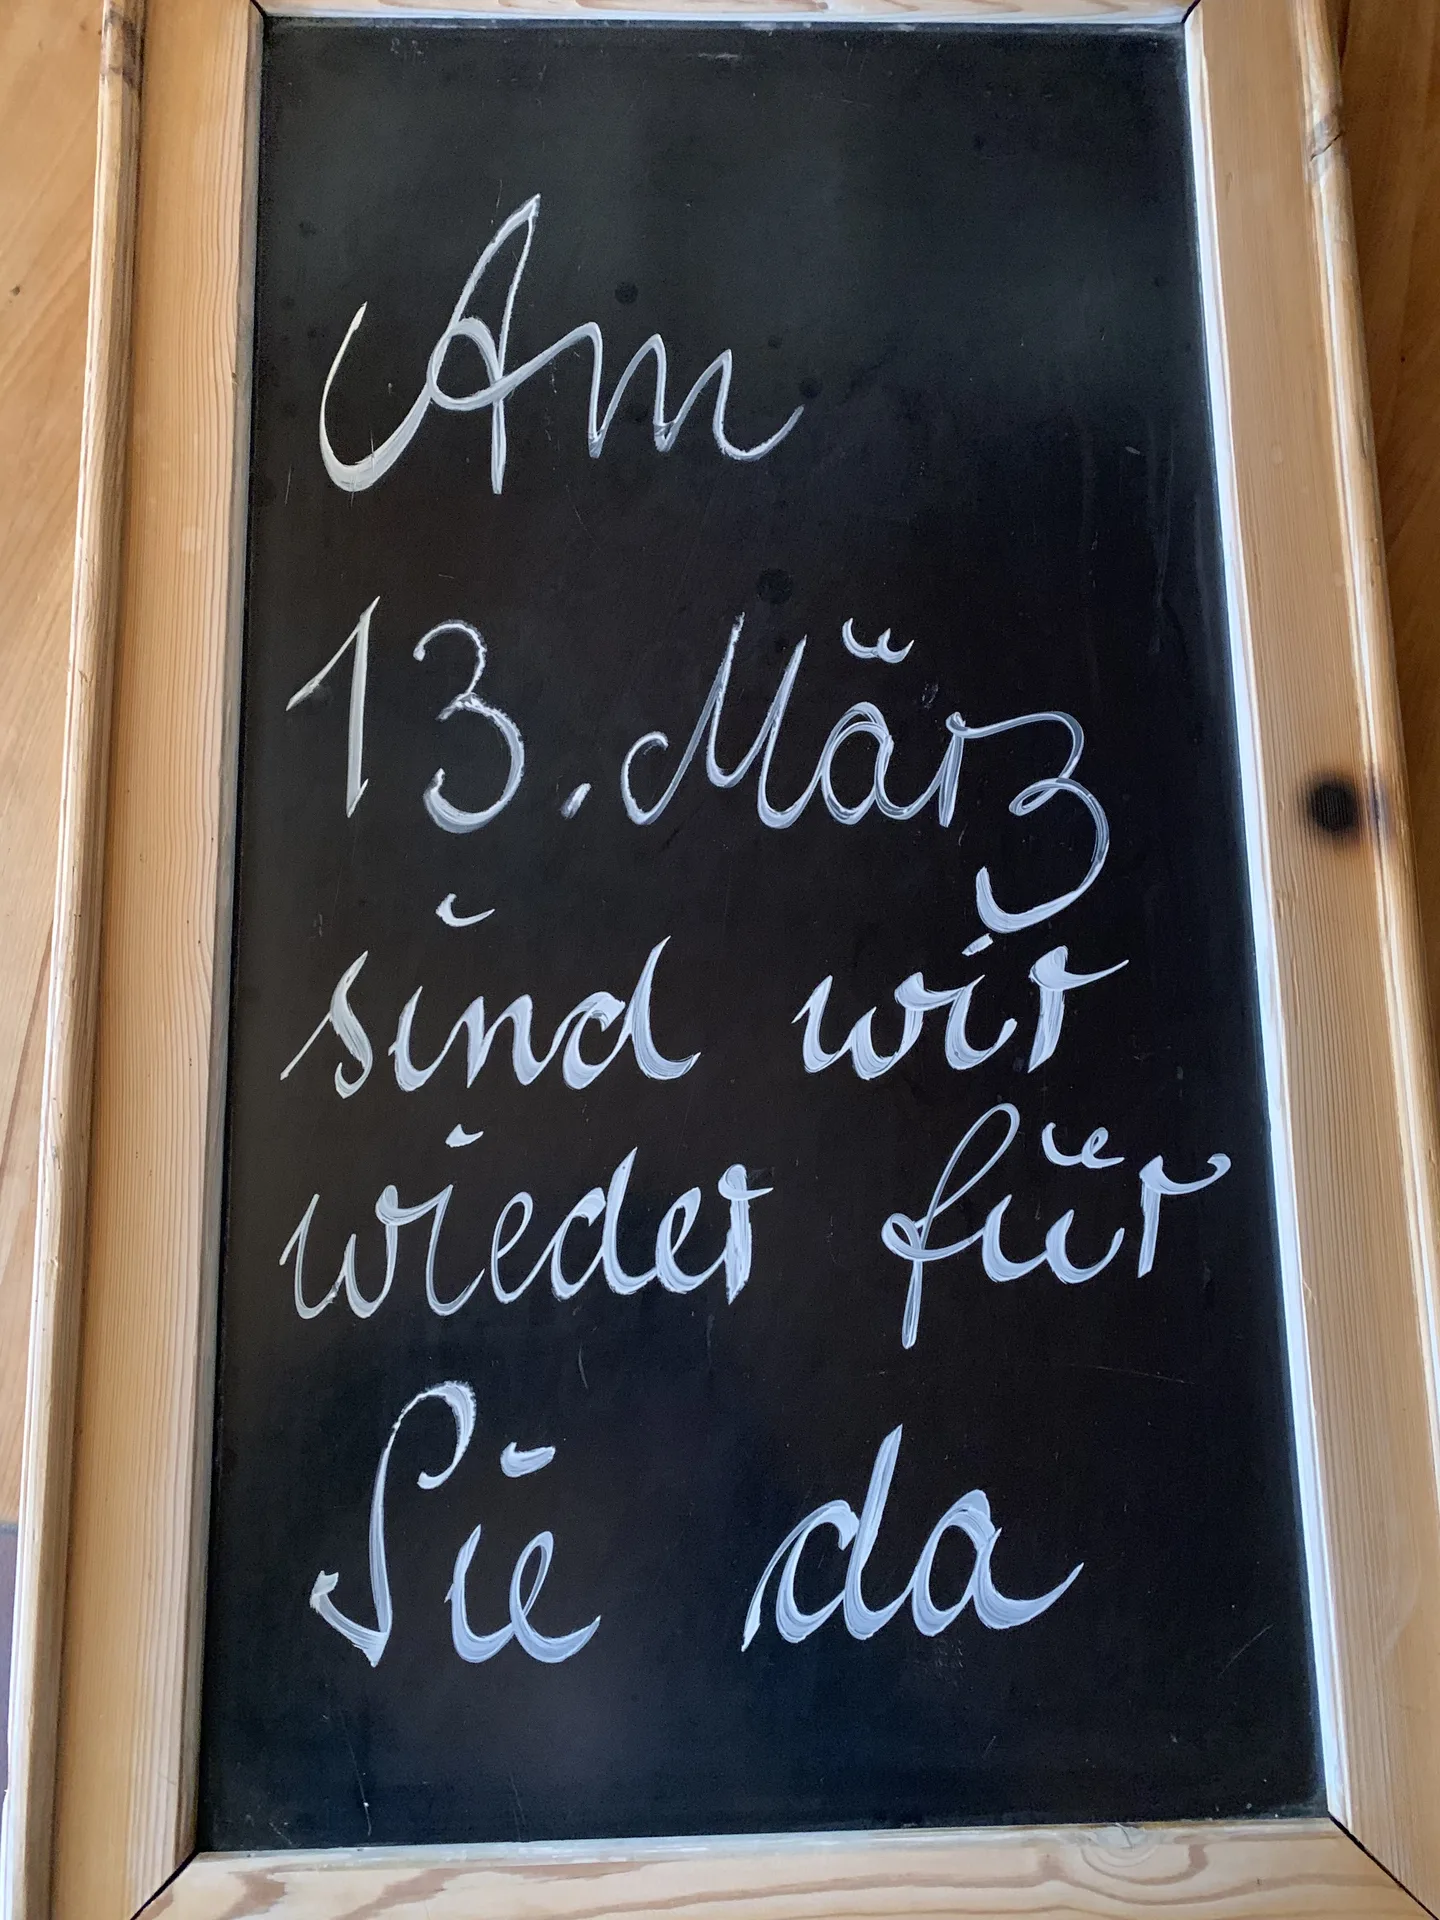 Am
13. März
sind wir
wieder für
Sie da